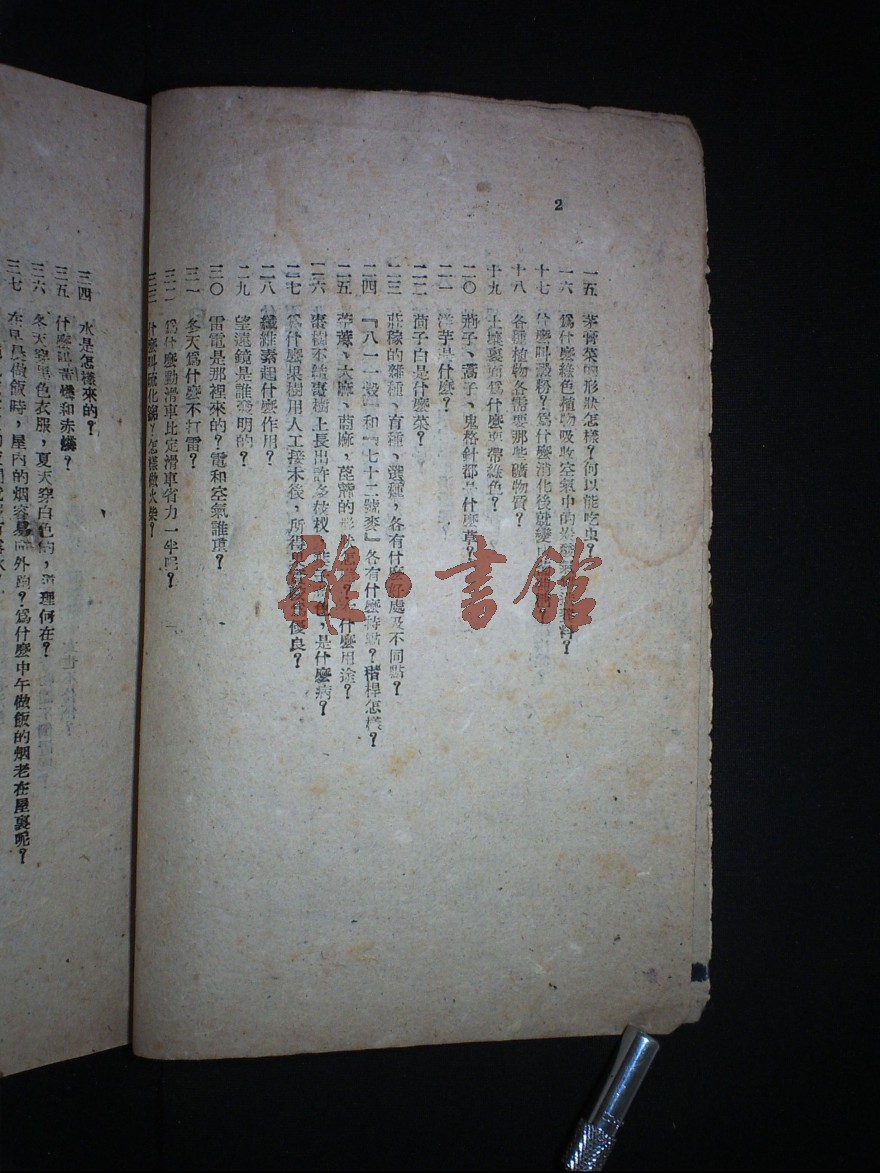 2
一五 茅膏菜的形狀怎樣？何以能吃虫？
一六 爲什麼綠色植物吸收空氣中的
十七 什麼叫澱粉？爲什麼消化後就變
十八 各種植物各需要那些礦物質？
十九 土壤裏面爲什麼要帶綠色？
二〇 荊子、蒿子、鬼格針都是什麼草？
二一 洋芋是什麼？
二二 茼子白是什麼菜？
二三 莊稼的雜種、育種、選種，各有什麼好處及不同點？
二四 『八一一穀』和『七十二號麥』各有什麼特點？稭桿怎樣？
二五 苧蔴、大麻、萞麻、萞蔴的形狀怎 什麼用途？
二六 棗樹不結棗樹上長出許多枝杈 色，是什麼病？
二七 爲什麼果樹用人工接木後，所得 優良？
二八 纖維素起什麼作用？
二九 望遠鏡是誰發明的？
三〇 雷電是那裡來的？電和空氣誰重？
三一 冬天爲什麼不打雷？
三二 爲什麼動滑車比定滑車省力一半呢？
三三 什麼叫硫化銻？怎樣做火柴？
三四 水是怎樣來的？
三五 什麼叫黃燐和赤燐？
三六 冬天穿黑色衣服，夏天穿白色的，道理何在？
三七 在早晨做飯時，屋內的烟容易 外跑？爲什麼中午做飯的烟老在屋裏呢？
雜·書館